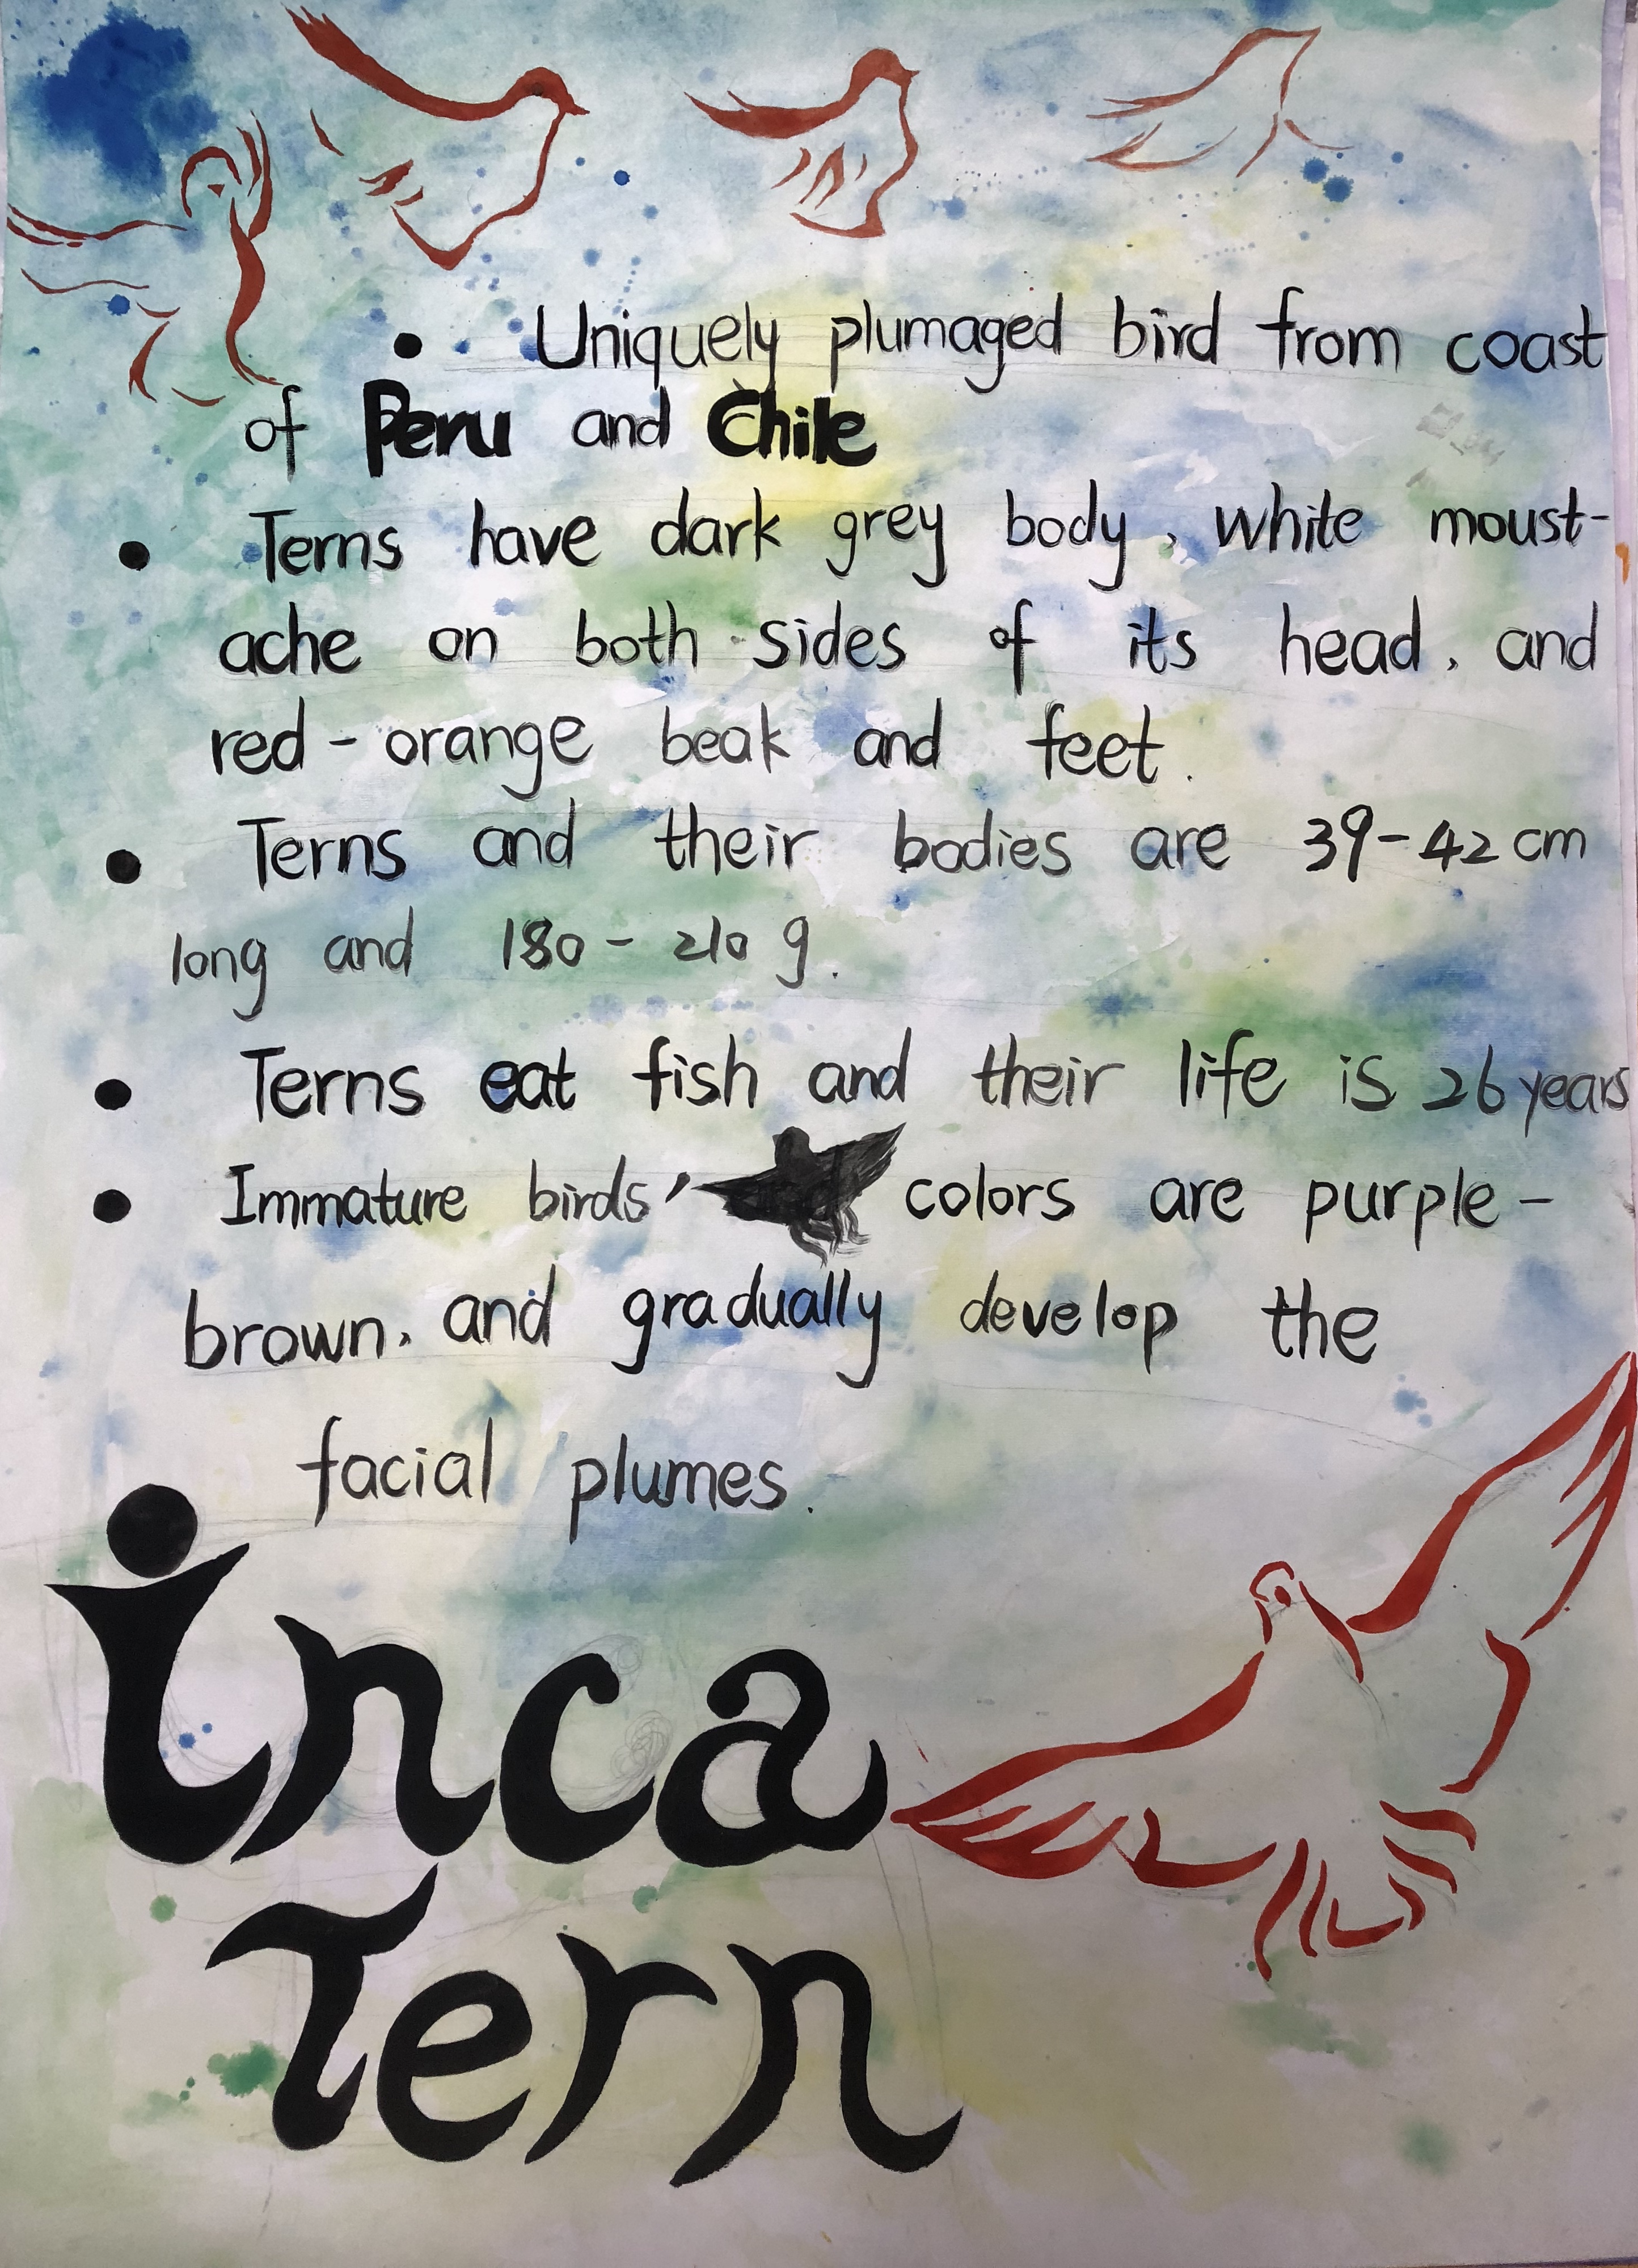 • Uniquely plumaged bird from coast
of Peru and Chile
• Terns have dark grey body, white moust-
ache on both sides of its head, and
red-orange beak and feet.
• Terns and their bodies are 39-42 cm
long and 180-210 g.
• Terns eat fish and their life is 26 years
• Immature birds' colors are purple-
brown, and gradually develop the
facial plumes.
inca
Tern